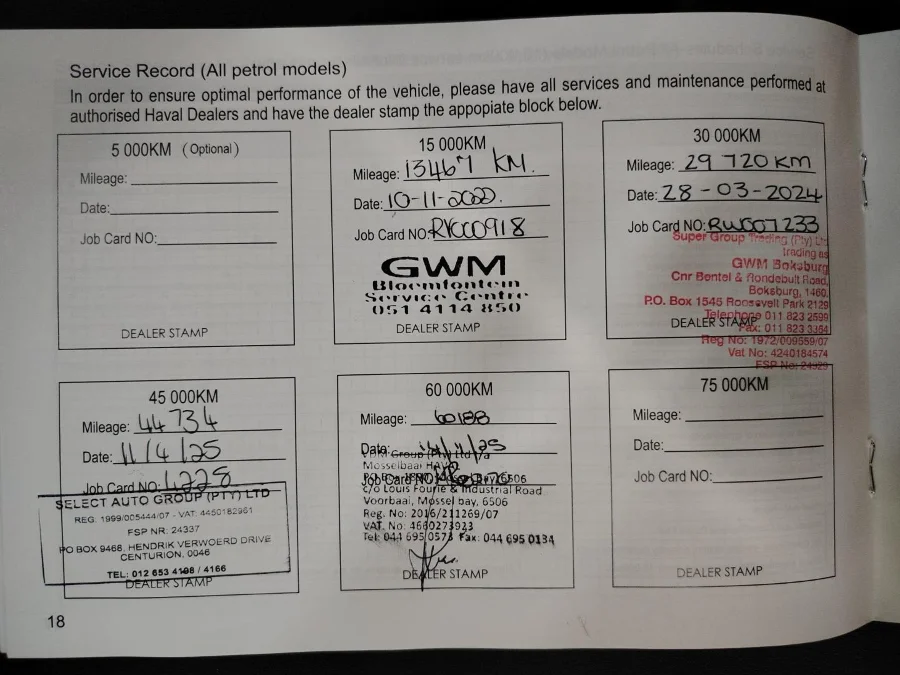 Service Record (All petrol models)
In order to ensure optimal performance of the vehicle, please have all services and maintenance performed at
authorised Haval Dealers and have the dealer stamp the appopiate block below.
5 000KM (Optional)
Mileage:
Date:
Job Card NO:
DEALER STAMP
15 000KM
Mileage: 13467 KM.
Date: 10-11-2022.
Job Card NO:
GWM
Bloemfontein
Service Centre
051 4114 850
DEALER STAMP
30 000KM
Mileage: 29 720 KM
Date: 28-03-2024
Job Card NO: RW007233
Super Group Trading (Pty) Ltd
trading as
GWM Boksburg
Cnr Bentel & Rondebult Road,
Boksburg, 1460.
P.O. Box 1546 Roosevelt Park 2129
Telephone 011 823 2599
DEALER STAMP
Fax: 011 823 3364
Reg No: 1972/009559/07
Vat No: 4240184574
FSP No: 24929
45 000KM
Mileage: 44 734
Date: 11/4/25
Job Card NO:
SELECT AUTO GROUP (PTY) LTD
REG: 1999/005444/07 - VAT: 4450182961
FSP NR: 24337
PO BOX 9468, HENDRIK VERWOERD DRIVE
CENTURION, 0046
TEL: 012 653 4198 / 4166
DEALER STAMP
60 000KM
Mileage: 60188
Date:
Group (Pty) Ltd
Mosselbaai
Job Card NO: 6506
c/o Louis Fourie & Industrial Road
Voorbaai, Mossel bay, 6506
Reg. No: 2016/211269/07
VAT. No: 4660273923
Tel: 044 695 0573 Fax: 044 695 0134
DEALER STAMP
75 000KM
Mileage:
Date:
Job Card NO:
DEALER STAMP
18